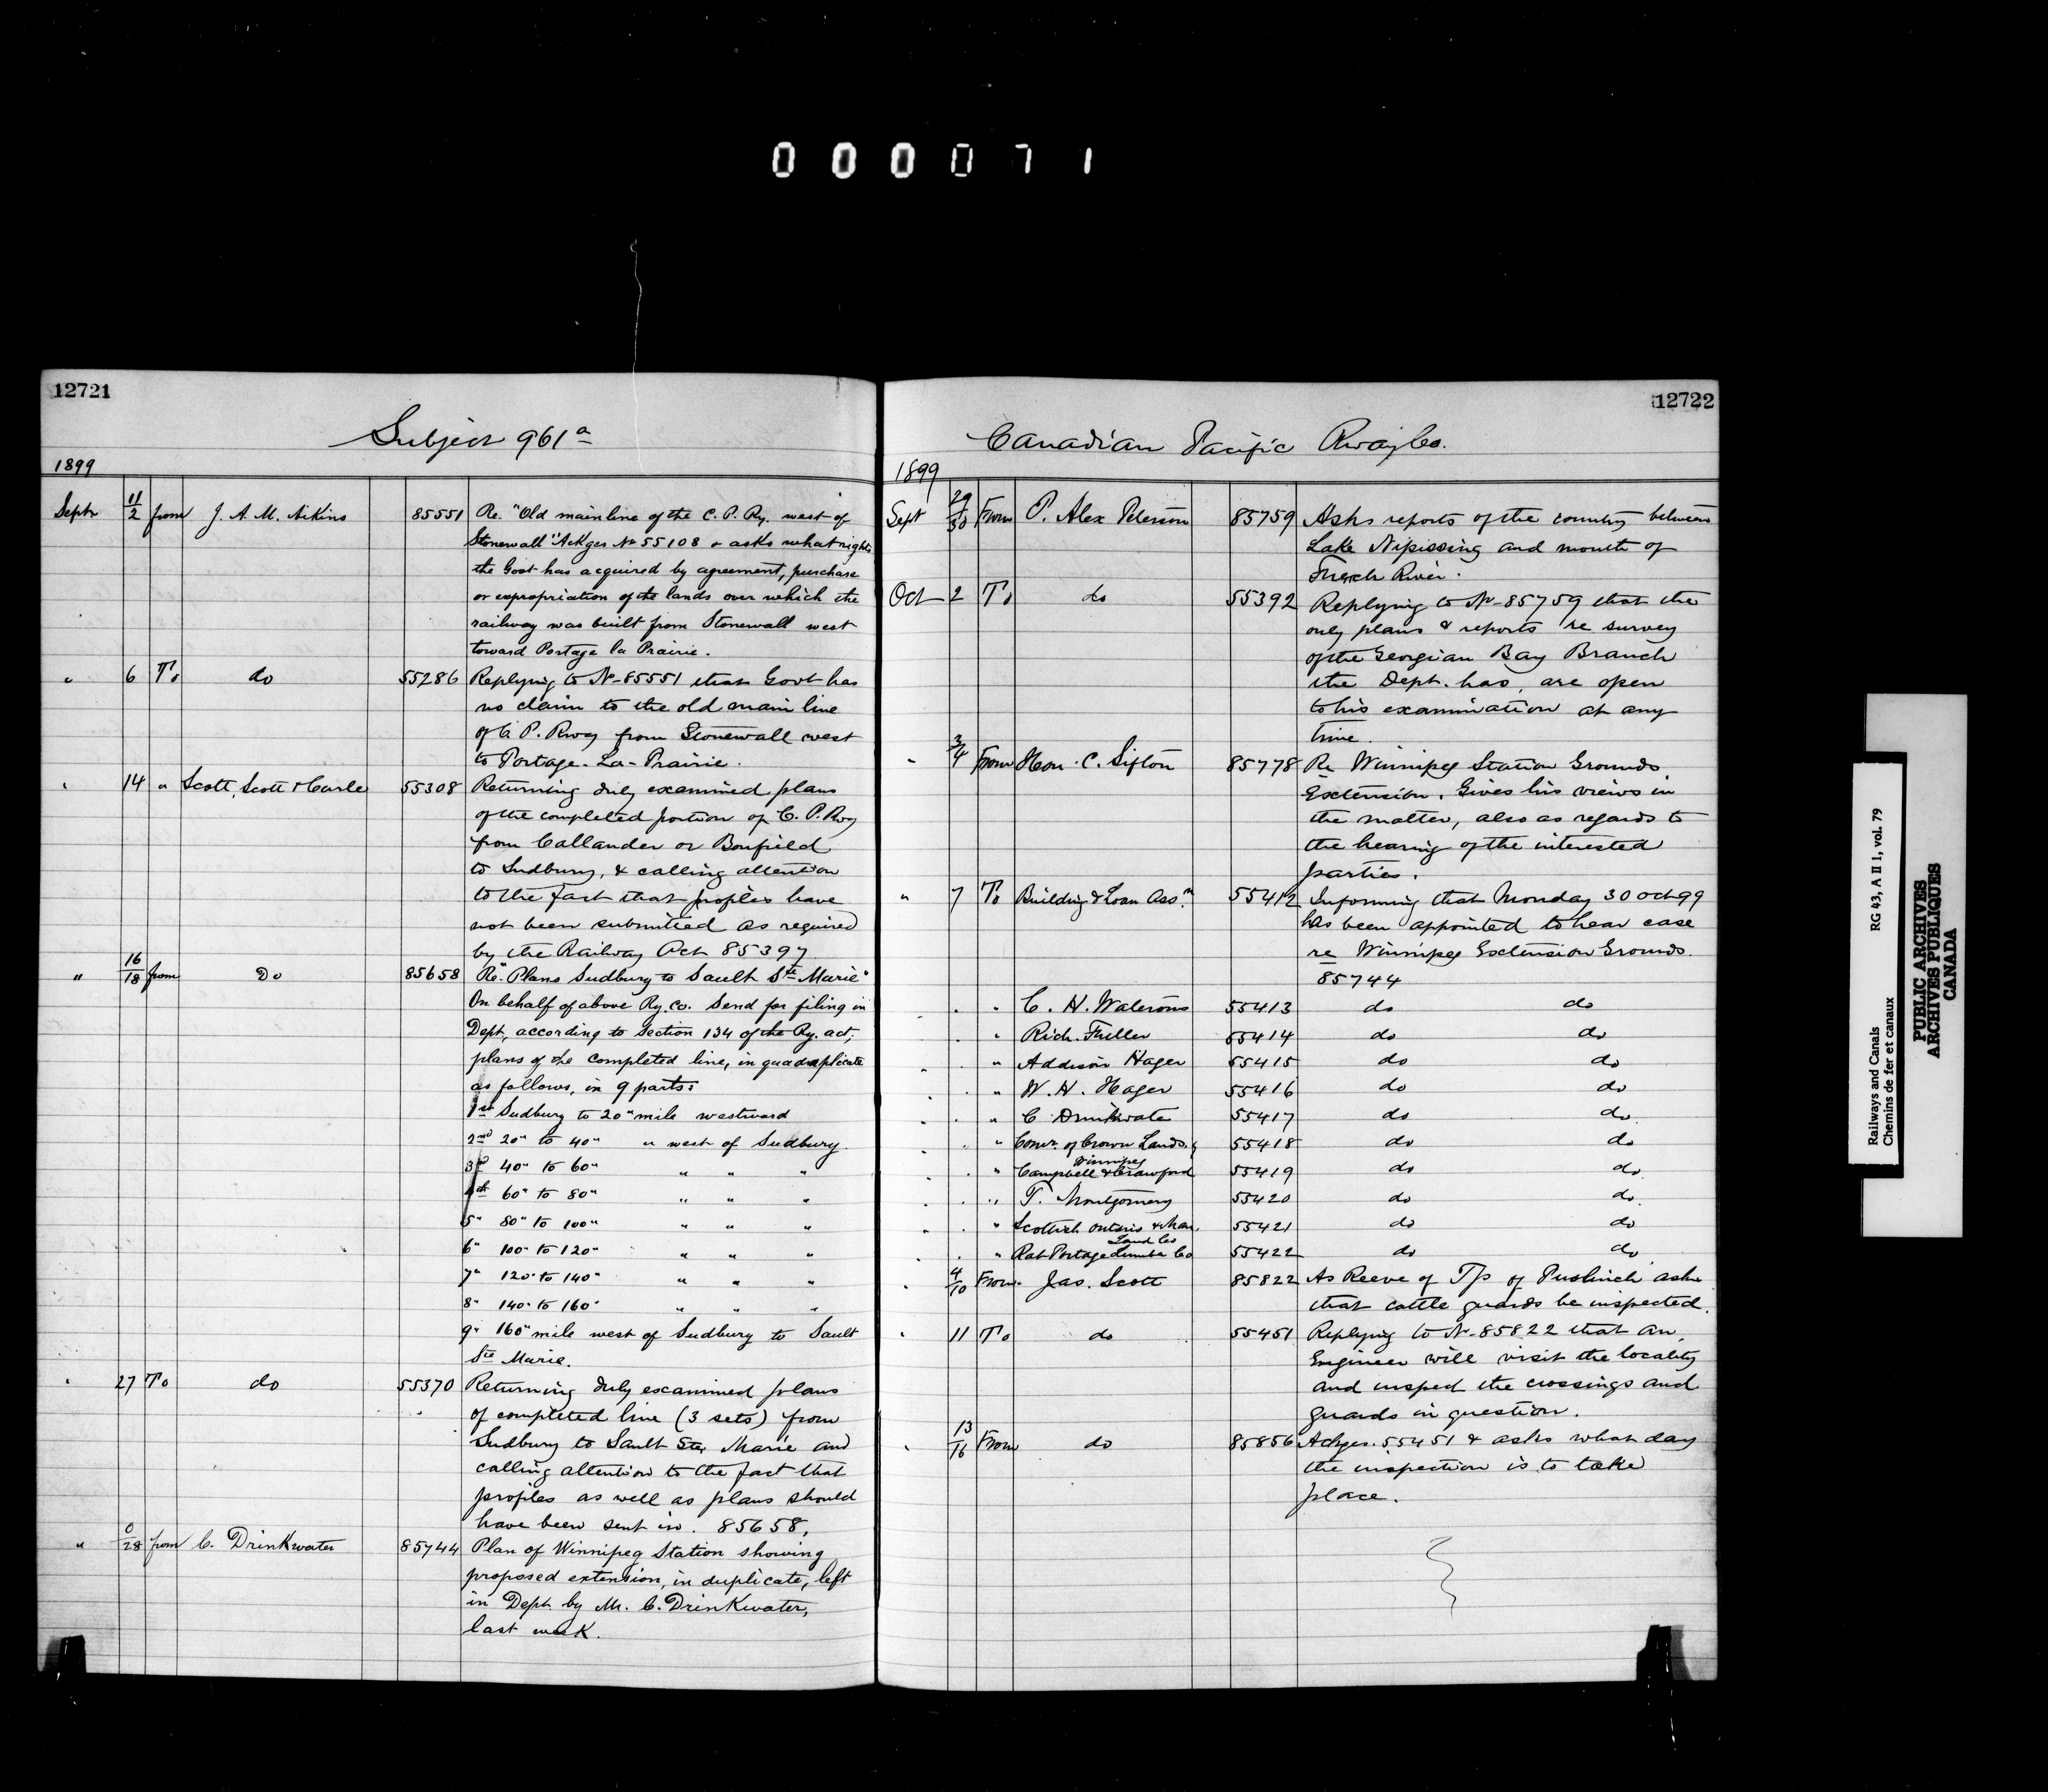 000071
12721
Subject 961a
1899
Septr 11/2 from J. A. M. Aikins 85551 Re. "Old main line of the C. P. Ry. west of
Stonewall" Ackges No 55108 & asks what rights
the Govt has acquired by agreement, purchase
or expropriation of the lands over which the
railway was built from Stonewall west
toward Portage la Prairie.
" 6 To do 55286 Replying to No 85551 that Govt has
no claim to the old main line
of C. P. Rwy from Stonewall west
to Portage-La-Prairie.
" 14 " Scott, Scott & Curle 55308 Returning duly examined plans
of the completed portion of C. P. Rwy
from Callander or Bonfield
to Sudbury, & calling attention
to the fact that profiles have
not been submitted as required
by the Railway Act 85397
" 16/18 from Do 85658 Re "Plans Sudbury to Sault Ste Marie"
On behalf of above Ry. Co. Send for filing in
Dept, according to Section 134 of the Ry. act,
plans of the completed line, in quadruplicate
as follows, in 9 parts:
1st Sudbury to 20" mile westward
2nd 20" to 40" " west of Sudbury.
3rd 40" to 60" " " "
4th 60" to 80" " " "
5" 80" to 100" " " "
6" 100" to 120" " " "
7" 120" to 140" " " "
8" 140" to 160" " " "
9" 160" mile west of Sudbury to Sault
Ste Marie.
" 27 To do 55370 Returning duly examined plans
of completed line (3 sets) from
Sudbury to Sault Ste Marie and
calling attention to the fact that
profiles as well as plans should
have been sent in. 85658,
" 0/28 from C. Drinkwater 85744 Plan of Winnipeg Station showing
proposed extension, in duplicate, left
in Dept by Mr. C. Drinkwater,
last week.
12722
Canadian Pacific Rway Co.
1899
Sept 29/30 From P. Alex Peterson 85759 Asks reports of the country between
Lake Nipissing and mouth of
French River.
Oct 2 To do 55392 Replying to No 85759 that the
only plans & reports re survey
of the Georgian Bay Branch
the Dept. has, are open
to his examination at any
time.
" 3/4 From Hon. C. Sifton 85778 Re Winnipeg Station Grounds
Extension. Gives his views in
the matter, also as regards to
the hearing of the interested
parties.
" 7 To Building & Loan Assn 55412 Informing that Monday 30 Oct 99
has been appointed to hear case
re Winnipeg Extension Grounds.
85744
" " " C. H. Waterous 55413 do do
" " Rich. Fuller 55414 do do
" " " Addison Hager 55415 do do
" " " W. H. Hager 55416 do do
" " " C Drinkwater 55417 do do
" " " Comr. of Crown Lands, 55418 do do
Winnipeg
" " " Campbell & Crawford 55419 do do
" " " T. Montgomery 55420 do do
" " " Scottish Ontario & Man. 55421 do do
Land Co
" " Rat Portage Lumber Co 55422 do do
" 4/10 From Jas. Scott 85822 As Reeve of Tp of Puslinch asks
that cattle guards be inspected.
" 11 To do 55451 Replying to No 85822 that an
Engineer will visit the locality
and inspect the crossings and
guards in question.
" 13/16 From do 85856 Ackges. 55451 & asks what day
the inspection is to take
place.
Railways and Canals
Chemins de fer et canaux
RG 43, A II 1, vol. 79
PUBLIC ARCHIVES
ARCHIVES PUBLIQUES
CANADA